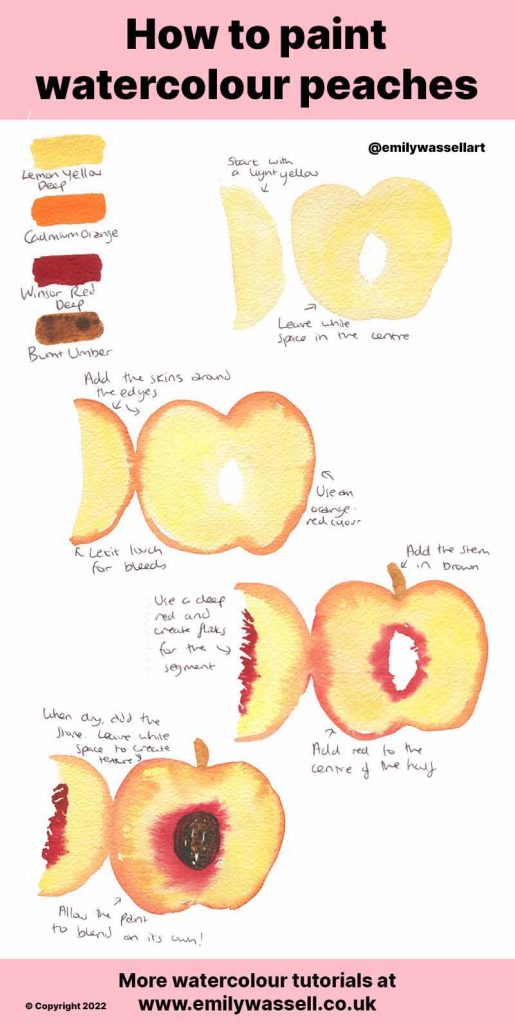 How to paint
watercolour peaches
@emilywassellart
Lemon Yellow
Deep
Cadmium Orange
Winsor Red
Deep
Burnt Umber
Start with
a light yellow
Leave white
space in the centre
Add the skins around
the edges
Use an
orange-
red colour
Let it touch
for bleeds
Add the stem
in brown
Use a deep
red and
create flicks
for the
segment
Add red to the
centre of the half
When dry, add the
stone. Leave white
space to create
texture
Allow the paint
to blend on its own!
More watercolour tutorials at
© Copyright 2022
www.emilywassell.co.uk